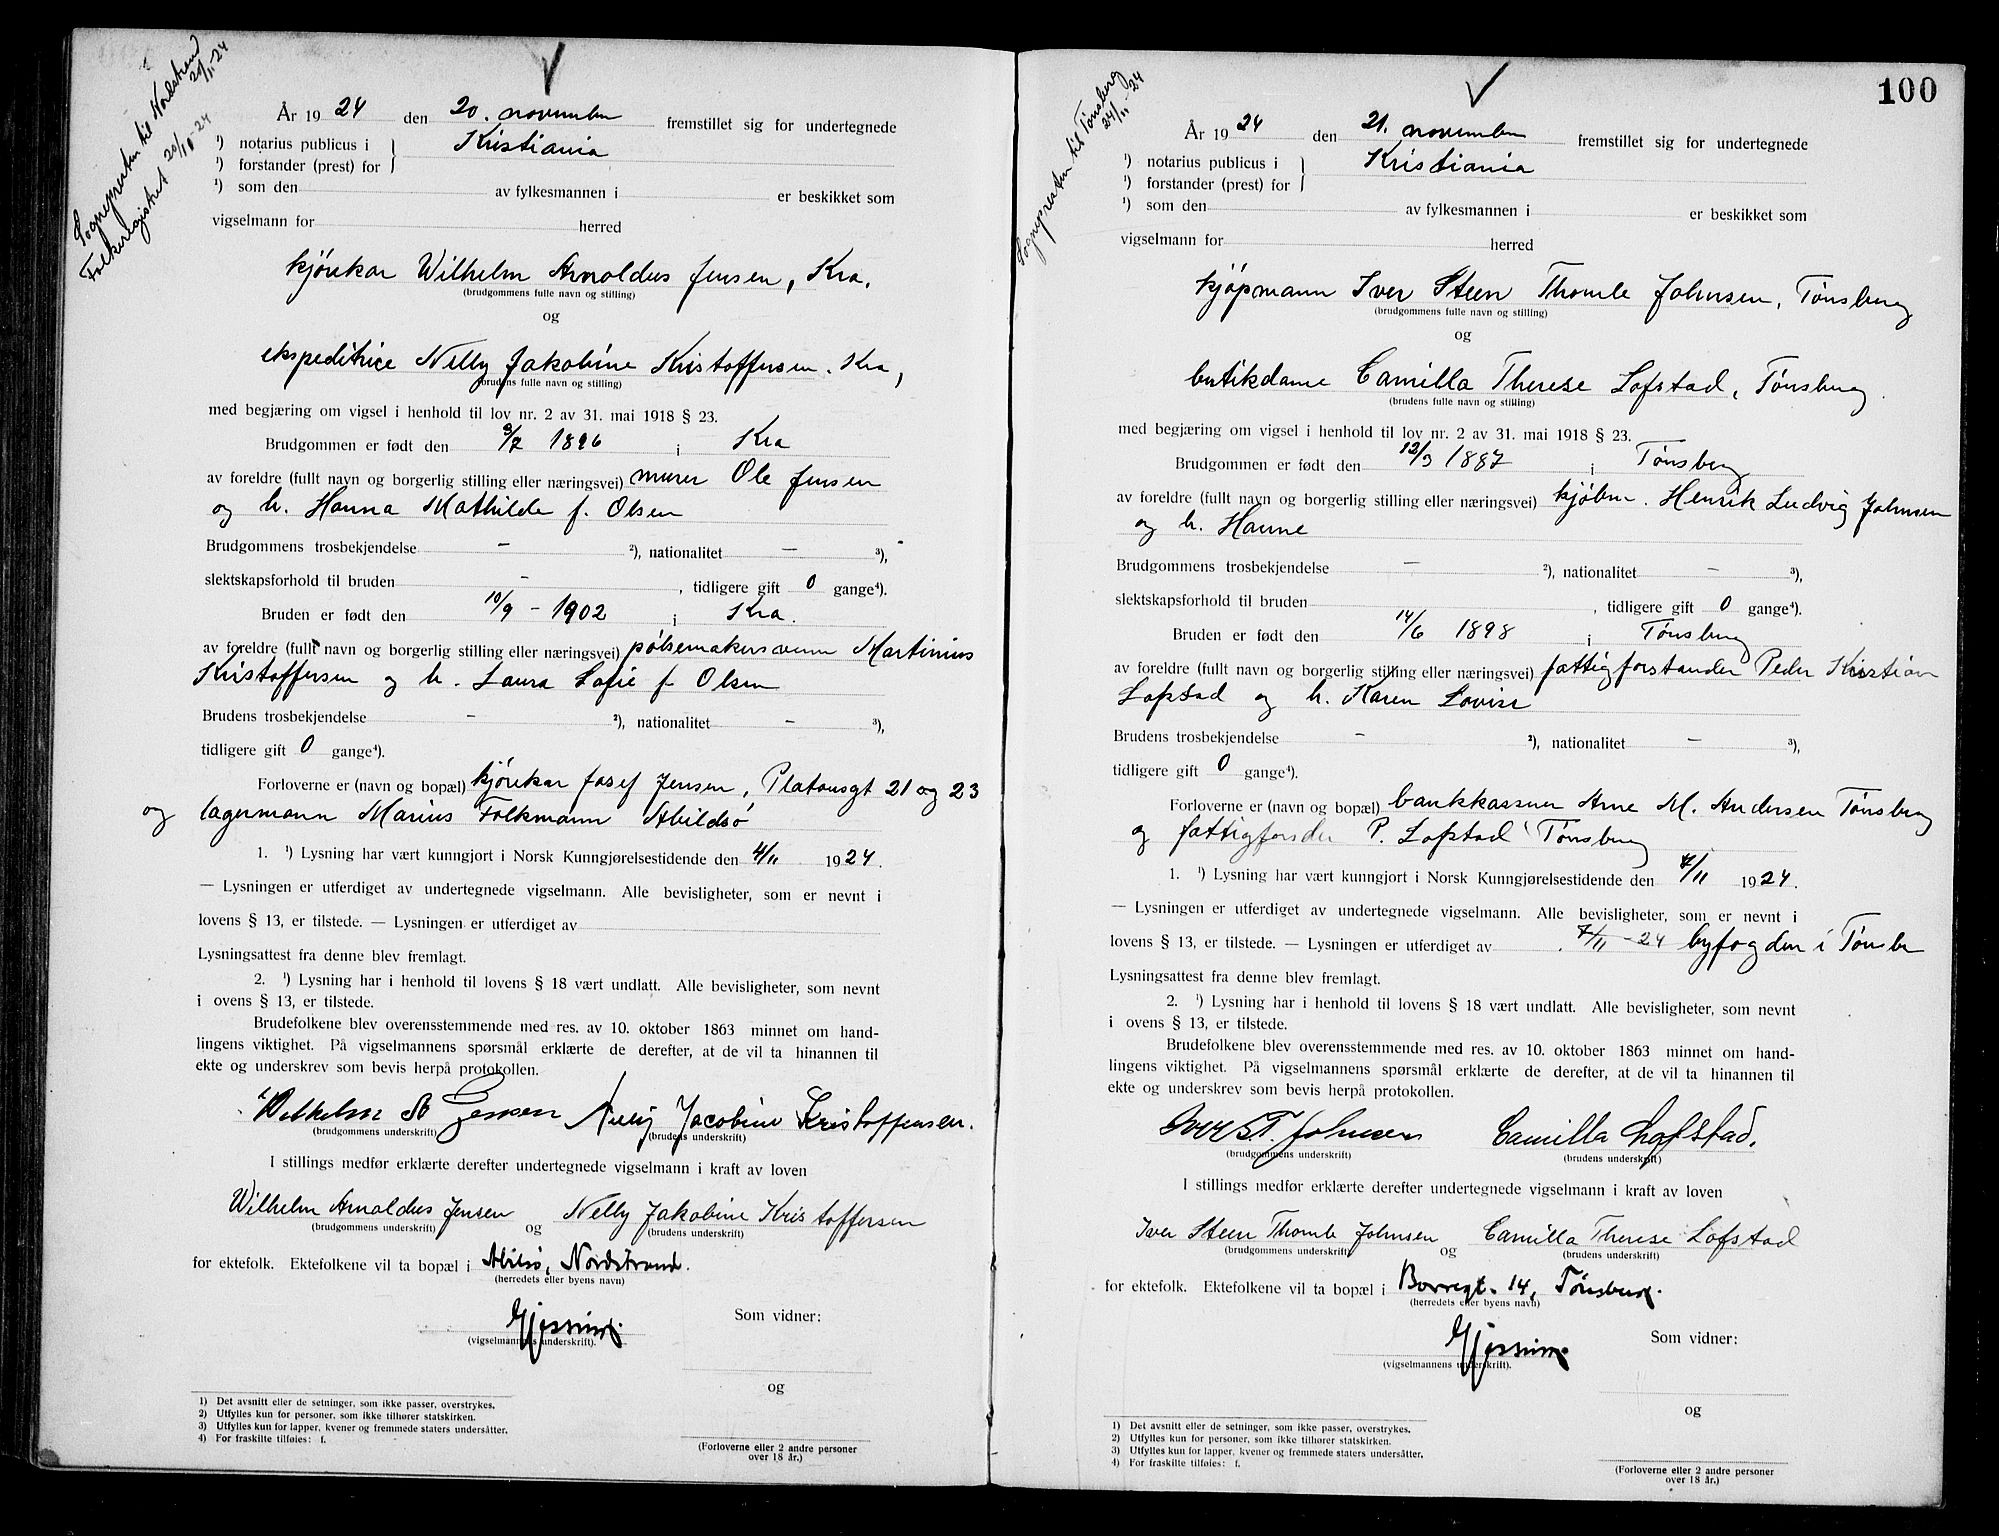 Sognepresten til Nordstrand
20/11-24
Folkeregistret 20/11-24
År 1924 den 20. november fremstillet sig for undertegnede
¹) notarius publicus i } Kristiania
¹) forstander (prest) for
¹) som den av fylkesmannen i er beskikket som
vigselmann for herred
kjørekar Wilhelm Arnoldus Jensen, Kra.
(brudgommens fulle navn og stilling)
og
ekspeditrice Nelly Jakobine Kristoffersen. Kra,
(brudens fulle navn og stilling)
med begjæring om vigsel i henhold til lov nr. 2 av 31. mai 1918 § 23.
Brudgommen er født den 9/7 1896 i Kra
av foreldre (fullt navn og borgerlig stilling eller næringsvei) murer Ole Jensen
og h. Hanna Mathilde f. Olsen
Brudgommens trosbekjendelse - ²), nationalitet - ³),
slektskapsforhold til bruden - , tidligere gift 0 gange⁴).
Bruden er født den 10/9 - 1902 i Kra.
av foreldre (fullt navn og borgerlig stilling eller næringsvei) pølsemakersvenn Martinius
Kristoffersen og h. Laura Sofie f. Olsen
Brudens trosbekjendelse - ²), nationalitet - ³),
tidligere gift 0 gange⁴).
Forloverne er (navn og bopæl) kjørekar Josef Jensen, Platousgt 21 og 23
og lagermann Marius Folkmann Abildsø
1. ¹) Lysning har vært kunngjort i Norsk Kunngjørelsestidende den 4/11 1924.
— Lysningen er utferdiget av undertegnede vigselmann. Alle bevisligheter, som er nevnt i
lovens § 13, er tilstede. — Lysningen er utferdiget av
Lysningsattest fra denne blev fremlagt.
2. ¹) Lysning har i henhold til lovens § 18 vært undlatt. Alle bevisligheter, som nevnt
i ovens § 13, er tilstede.
Brudefolkene blev overensstemmende med res. av 10. oktober 1863 minnet om hand-
lingens viktighet. På vigselmannens spørsmål erklærte de derefter, at de vil ta hinannen til
ekte og underskrev som bevis herpå protokollen.
Wilhelm A Jensen Nelly Jacobine Kristoffersen.
(brudgommens underskrift) (brudens underskrift)
I stillings medfør erklærte derefter undertegnede vigselmann i kraft av loven
Wilhelm Arnoldus Jensen og Nelly Jakobine Kristoffersen
(brudgommens underskrift) (brudens underskrift)
for ektefolk. Ektefolkene vil ta bopæl i Abilsø, Nordstrand.
(herredets eller byens navn)
Gjessing.
(vigselmannens underskrift).
Som vidner:
og
(Forloverne eller 2 andre personer
over 18 år.)
1) Det avsnitt eller de setninger, som ikke passer, overstrykes.
2) Utfylles kun for personer, som ikke tilhører statskirken.
3) Utfylles kun for lapper, kvener og fremmede staters undersåtter.
4) For fraskilte tilføies: f.
100
Sognepresten til Tønsberg
24/11-24
År 1924 den 21. november fremstillet sig for undertegnede
¹) notarius publicus i } Kristiania
¹) forstander (prest) for
¹) som den av fylkesmannen i er beskikket som
vigselmann for herred
kjøpmann Iver Steen Thomle Johnsen, Tønsberg
(brudgommens fulle navn og stilling)
og
butikdame Camilla Therese Lofstad, Tønsberg.
(brudens fulle navn og stilling)
med begjæring om vigsel i henhold til lov nr. 2 av 31. mai 1918 § 23.
Brudgommen er født den 12/3 1887 i Tønsberg
av foreldre (fullt navn og borgerlig stilling eller næringsvei) kjøbm. Henrik Ludvig Johnsen
og h. Hanne
Brudgommens trosbekjendelse - ²), nationalitet - ³),
slektskapsforhold til bruden , tidligere gift 0 gange⁴).
Bruden er født den 14/6 1898 i Tønsberg
av foreldre (fullt navn og borgerlig stilling eller næringsvei) fattigforstander Peder Kristian
Lofstad og h. Karen Lovise
Brudens trosbekjendelse - ²), nationalitet - ³),
tidligere gift 0 gange⁴).
Forloverne er (navn og bopæl) bankkasserer Arne M. Andersen Tønsberg
og fattigforsder P. Lofstad Tønsberg
1. ¹) Lysning har vært kunngjort i Norsk Kunngjørelsestidende den 7/11 1924.
— Lysningen er utferdiget av undertegnede vigselmann. Alle bevisligheter, som er nevnt i
lovens § 13, er tilstede. — Lysningen er utferdiget av 7/11-24 byfogden i Tønsbe
Lysningsattest fra denne blev fremlagt.
2. ¹) Lysning har i henhold til lovens § 18 vært undlatt. Alle bevisligheter, som nevnt
i ovens § 13, er tilstede.
Brudefolkene blev overensstemmende med res. av 10. oktober 1863 minnet om hand-
lingens viktighet. På vigselmannens spørsmål erklærte de derefter, at de vil ta hinannen til
ekte og underskrev som bevis herpå protokollen.
Iver S. T. Johnsen Camilla Lofstad.
(brudgommens underskrift) (brudens underskrift)
I stillings medfør erklærte derefter undertegnede vigselmann i kraft av loven
Iver Steen Thomle Johnsen og Camilla Therese Lofstad
(brudgommens underskrift) (brudens underskrift)
for ektefolk. Ektefolkene vil ta bopæl i Borregt. 14, Tønsberg.
(herredets eller byens navn)
Gjessing.
(vigselmannens underskrift).
Som vidner:
og
(Forloverne eller 2 andre personer
over 18 år.)
1) Det avsnitt eller de setninger, som ikke passer, overstrykes.
2) Utfylles kun for personer, som ikke tilhører statskirken.
3) Utfylles kun for lapper, kvener og fremmede staters undersåtter.
4) For fraskilte tilføies: f.